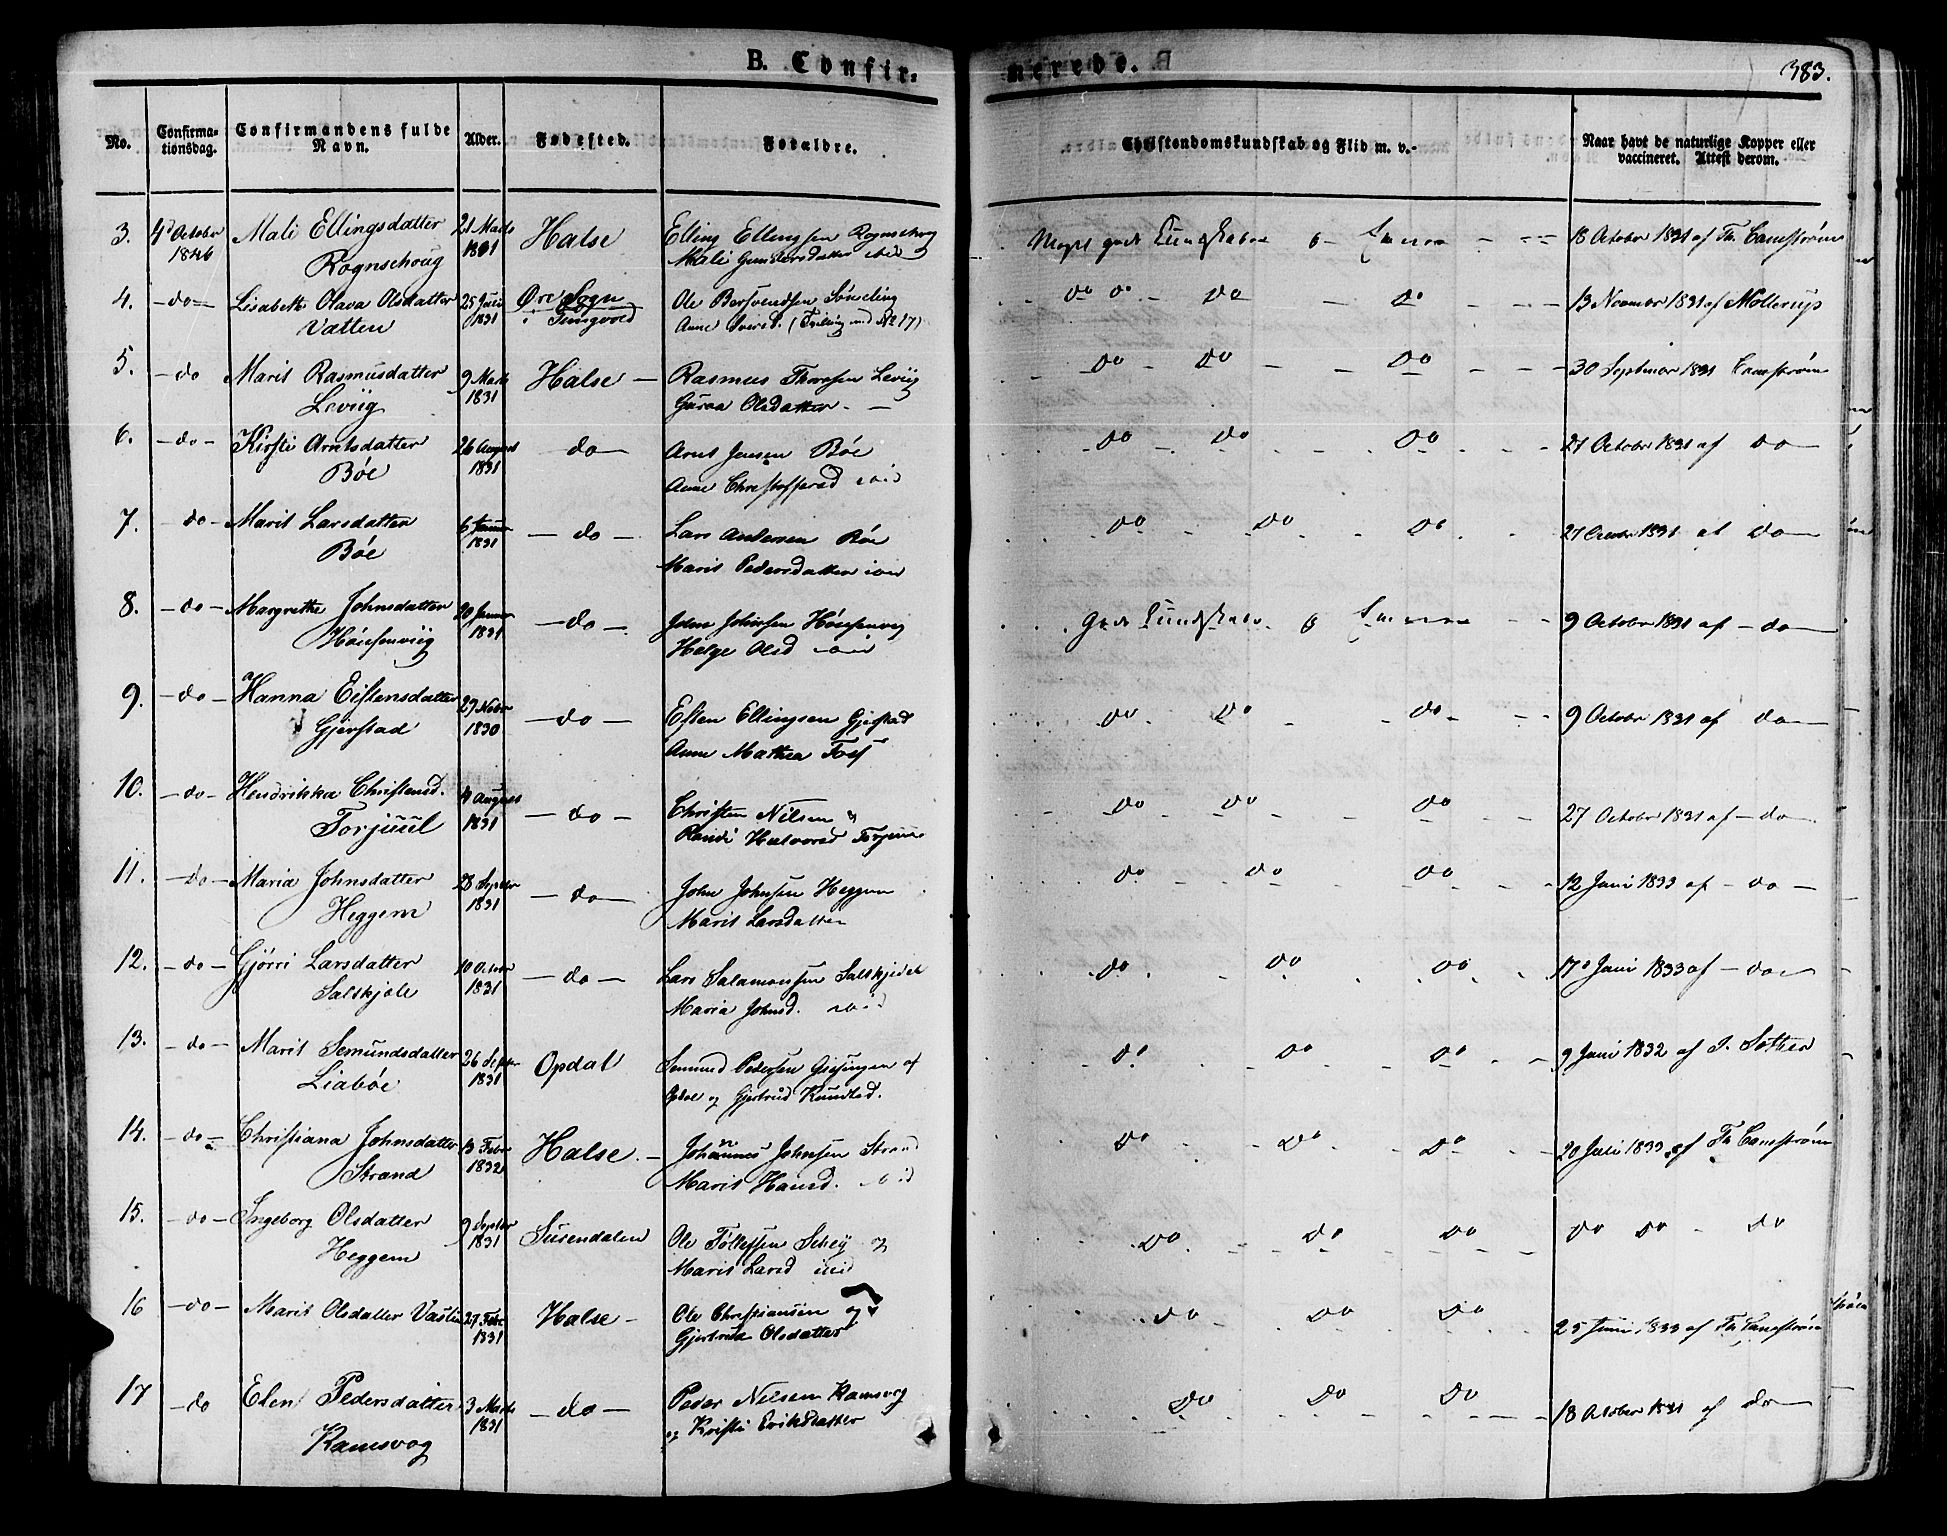 B. Confir-
merede.
383.
No.
Confirma-
tionsdag.
Confirmandens fulde
Navn.
Alder.
Fødested.
Forældre.
Christendomskundskab og Flid m. v.
Naar havt de naturlige Kopper eller
vaccineret. Attest derom.
3. 4d October Mali Ellingsdatter 21 Marts Halse Elling Ellingsen Rognschoug Meget gode Kundskaber 18 October 1831 af Th. Camstrøm
1846 Rognschoug 1831 Mali Gundersdatter ibid
4. -do- Lisabeth Olava Olsdatter 25 Øre Sogn Ole Bersvendsen Do Do - Do - Do 13 November 1831 af Møllerup
Vatten 1831 i Tingvold Anne Siversd. (Tvilling med No 17)
5. -do Marit Rasmusdatter 9 Marts Halse - Rasmus Thoresen Leviig Do Do - Do 30 September 1831 Camstrøm
Leviig 1831 Guroa Olsdatter -
6. -do- Kirsti Arntsdatter 26 August -do- Arnt Jensen Bøe Do - Do - Do 27 October 1831 af Do
Bøe 1831 Anne Christoffersd ibid
7. -do- Marit Larsdatter 6 Januar -do- Lars Andersen Bøe Do Do Do 27 October 1831 af Do
Bøe 1831 Marit Pedersdatter ibid
8. -do- Margrethe Johnsdatter 20 Januar -do- John Johnsen Gode Kundskaber 9 October 1831 af -do-
1831 Helge Olsd ibid
9. -do- Hanna Eistensdatter 27 Novbr -do- Esten Ellingsen Gjerstad Do Do Do 9 October 1831 af do
Gjerstad 1830 Anne Mathea
10. -do- Hendrikka Christensd. August -do- Christen Nilsen Do Do Do 27 October 1831 af -do-
Torjuul 1831 Randi Halvorsd Torjuul
11. -do- Maria Johnsdatter 28 Septbr -do- John Johnsen Heggem Do Do Do 12 Juni 1833 af -do-
Heggem 1831 Marit Larsdatter
12. -do- Gjørri Larsdatter 10 Octbr -do- Lars Salamonsen Do Do Do 17 Juni 1833 af -do-
Salskjøle 1831 Maria Johnsd. ibid
13. -do- Marit Semundsdatter 26 Septbr Opdal Semund Pedersen af Do Do Do 9 Juni 1832 af
Liabøe 1831 Opdal og Gjertrud Knudsd.
14. -do- Christiana Johnsdatter 13 Febr Halse - Johannes Johnsen Strand Do Do Do 20 Juli 1833 af Th Camstrøm
Strand 1832 Marit Hansd. ibid
15. -do- Ingeborg Olsdatter 9 Septbr Surendalen Ole og Do Do Do Do Do - Do
Heggem 1831 Marit Larsd ibid
16 -do- Marit Olsdatter 27 Febr Halse - Ole Christiansen og Do Do Do 25 Juni 1833 af Th Camstrøm
1831 Gjertrud Olsdatter
17 -do Elen Pedersdatter 3 Marts -do- Peder Nilsen Ramsvog Do Do Do 18 October 1831 af do
Ramsvog 1831 og Kristi Eriksdatter